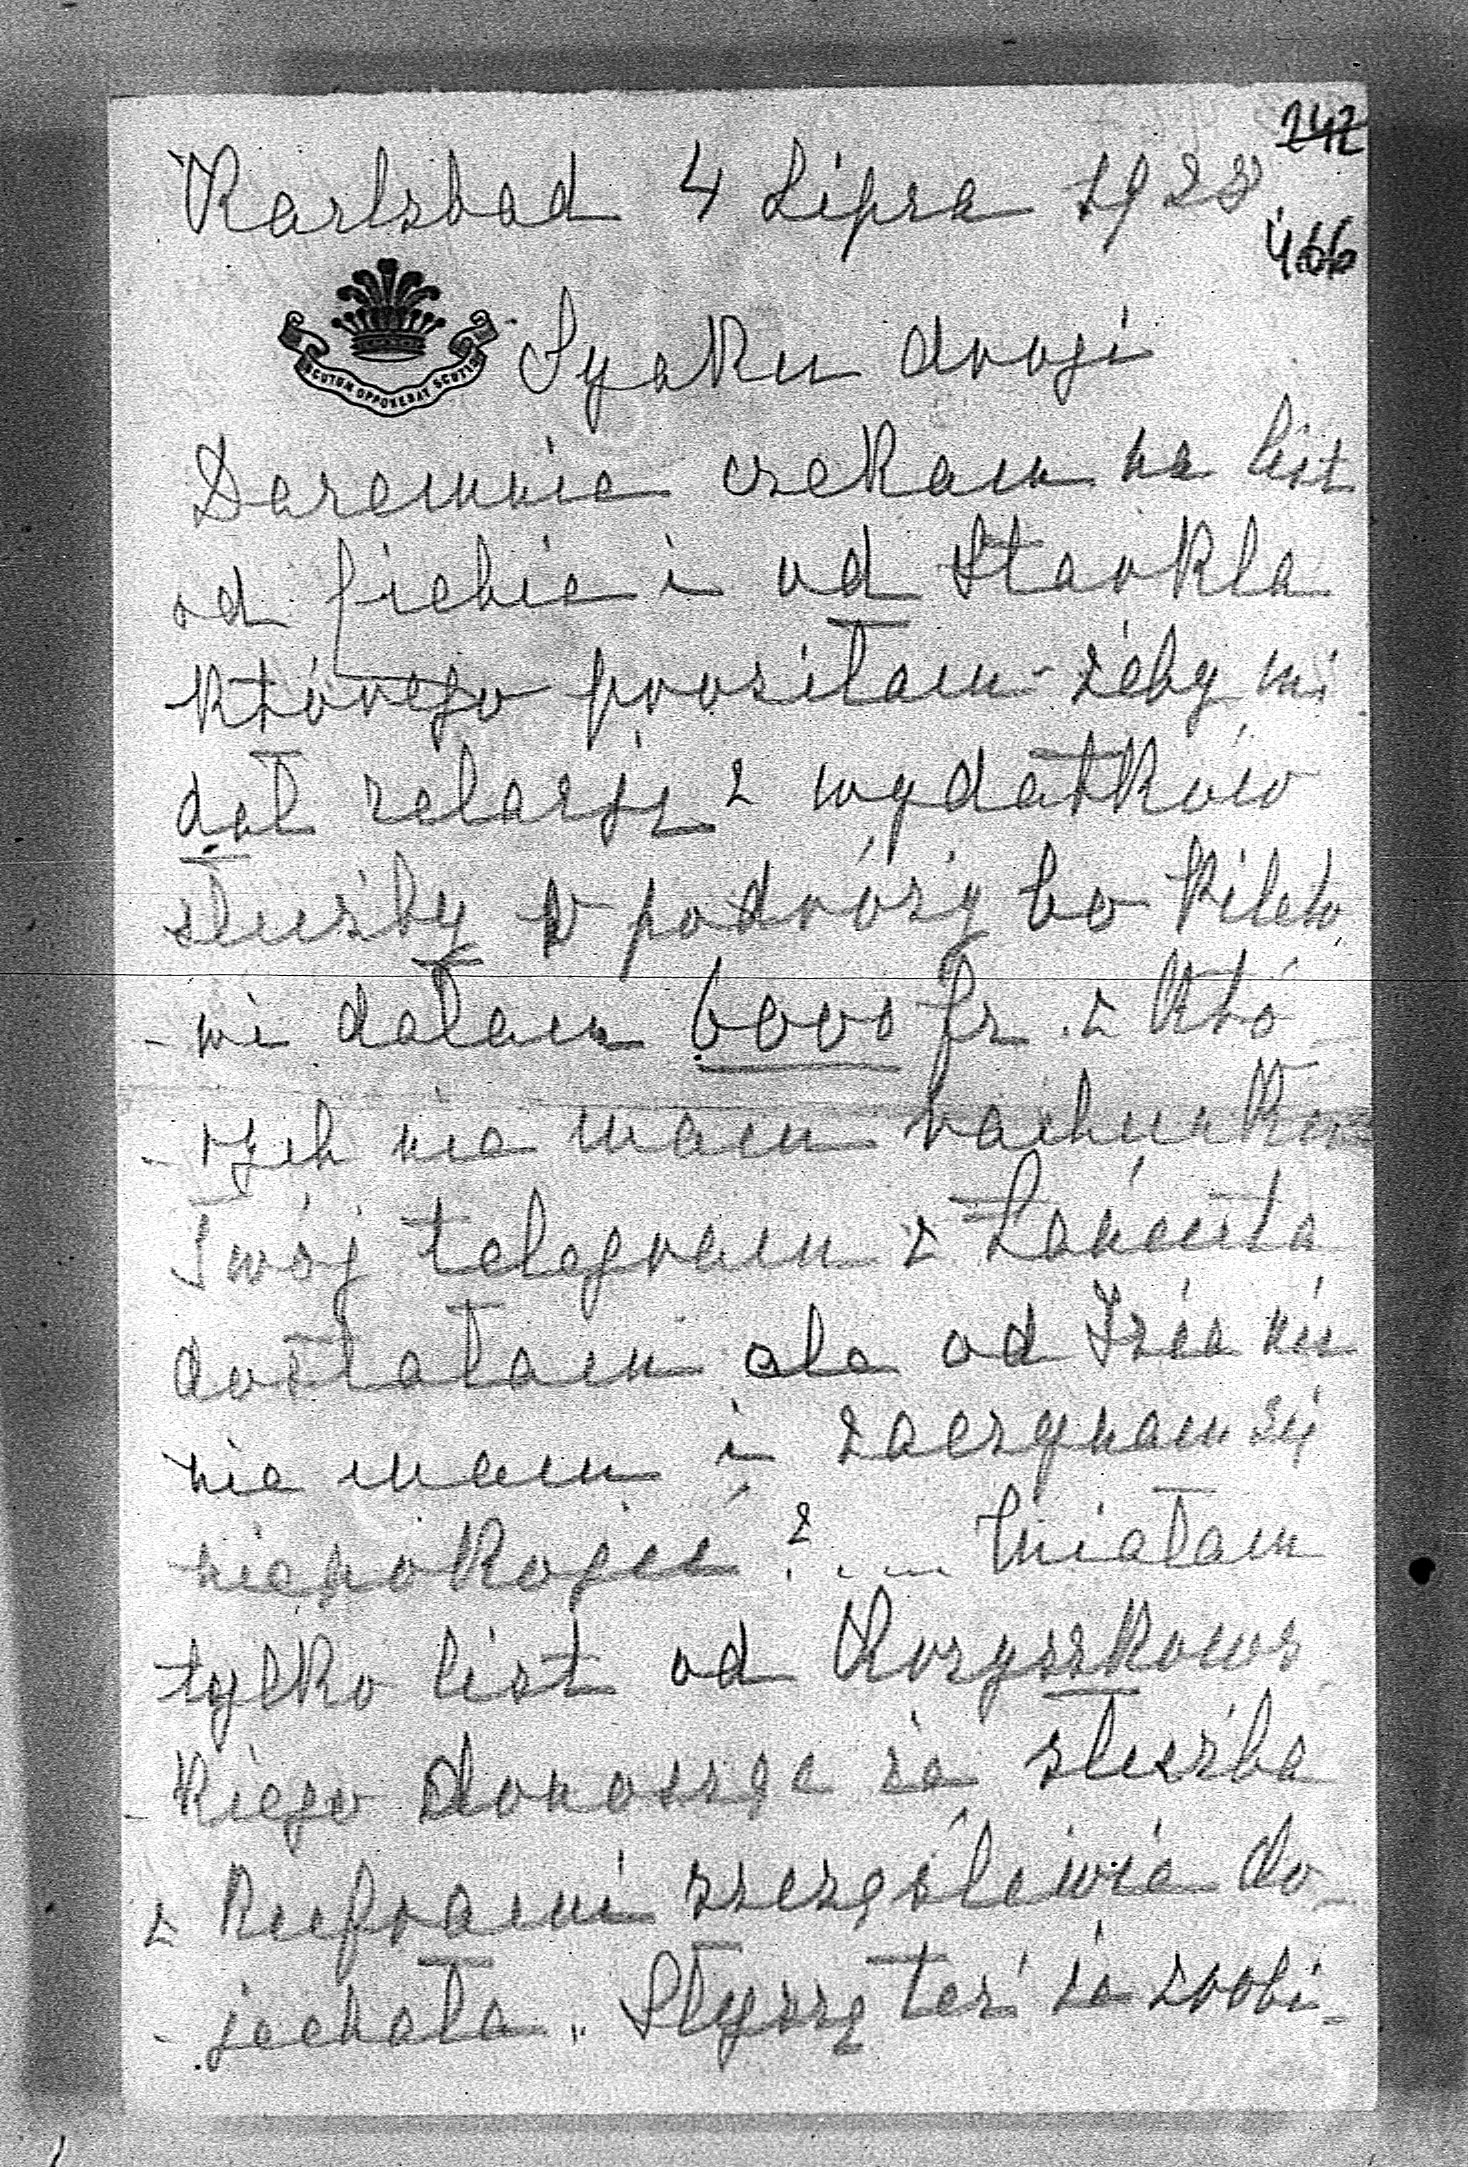 242
Karlsbad 4 Lipca 1928
466
SCUTUM OPPONEBAT SCUTIS
Synku drogi
Daremnie czekam na list
od Ciebie i od
którego prosiłam żeby mi
dał relacją z wydatków
służby w podróży bo
- wi dałam 6000 fr. z któ
- rych nie mam rachunków
Twój telegram z Łańcuta
dostałam ale od nic
nie mam i zaczynam się
niepokojić?.... Miałam
tylko list od
- kiego donoszące że służba
z kuframi szczęśliwie do-
- jechała. Słyszę też że zrobi=